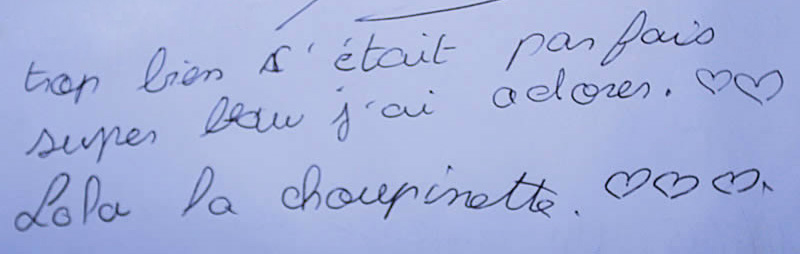 trop bien s'était parfais
super beau j'ai adorer. ♡♡
Lola la choupinette. ♡♡♡.